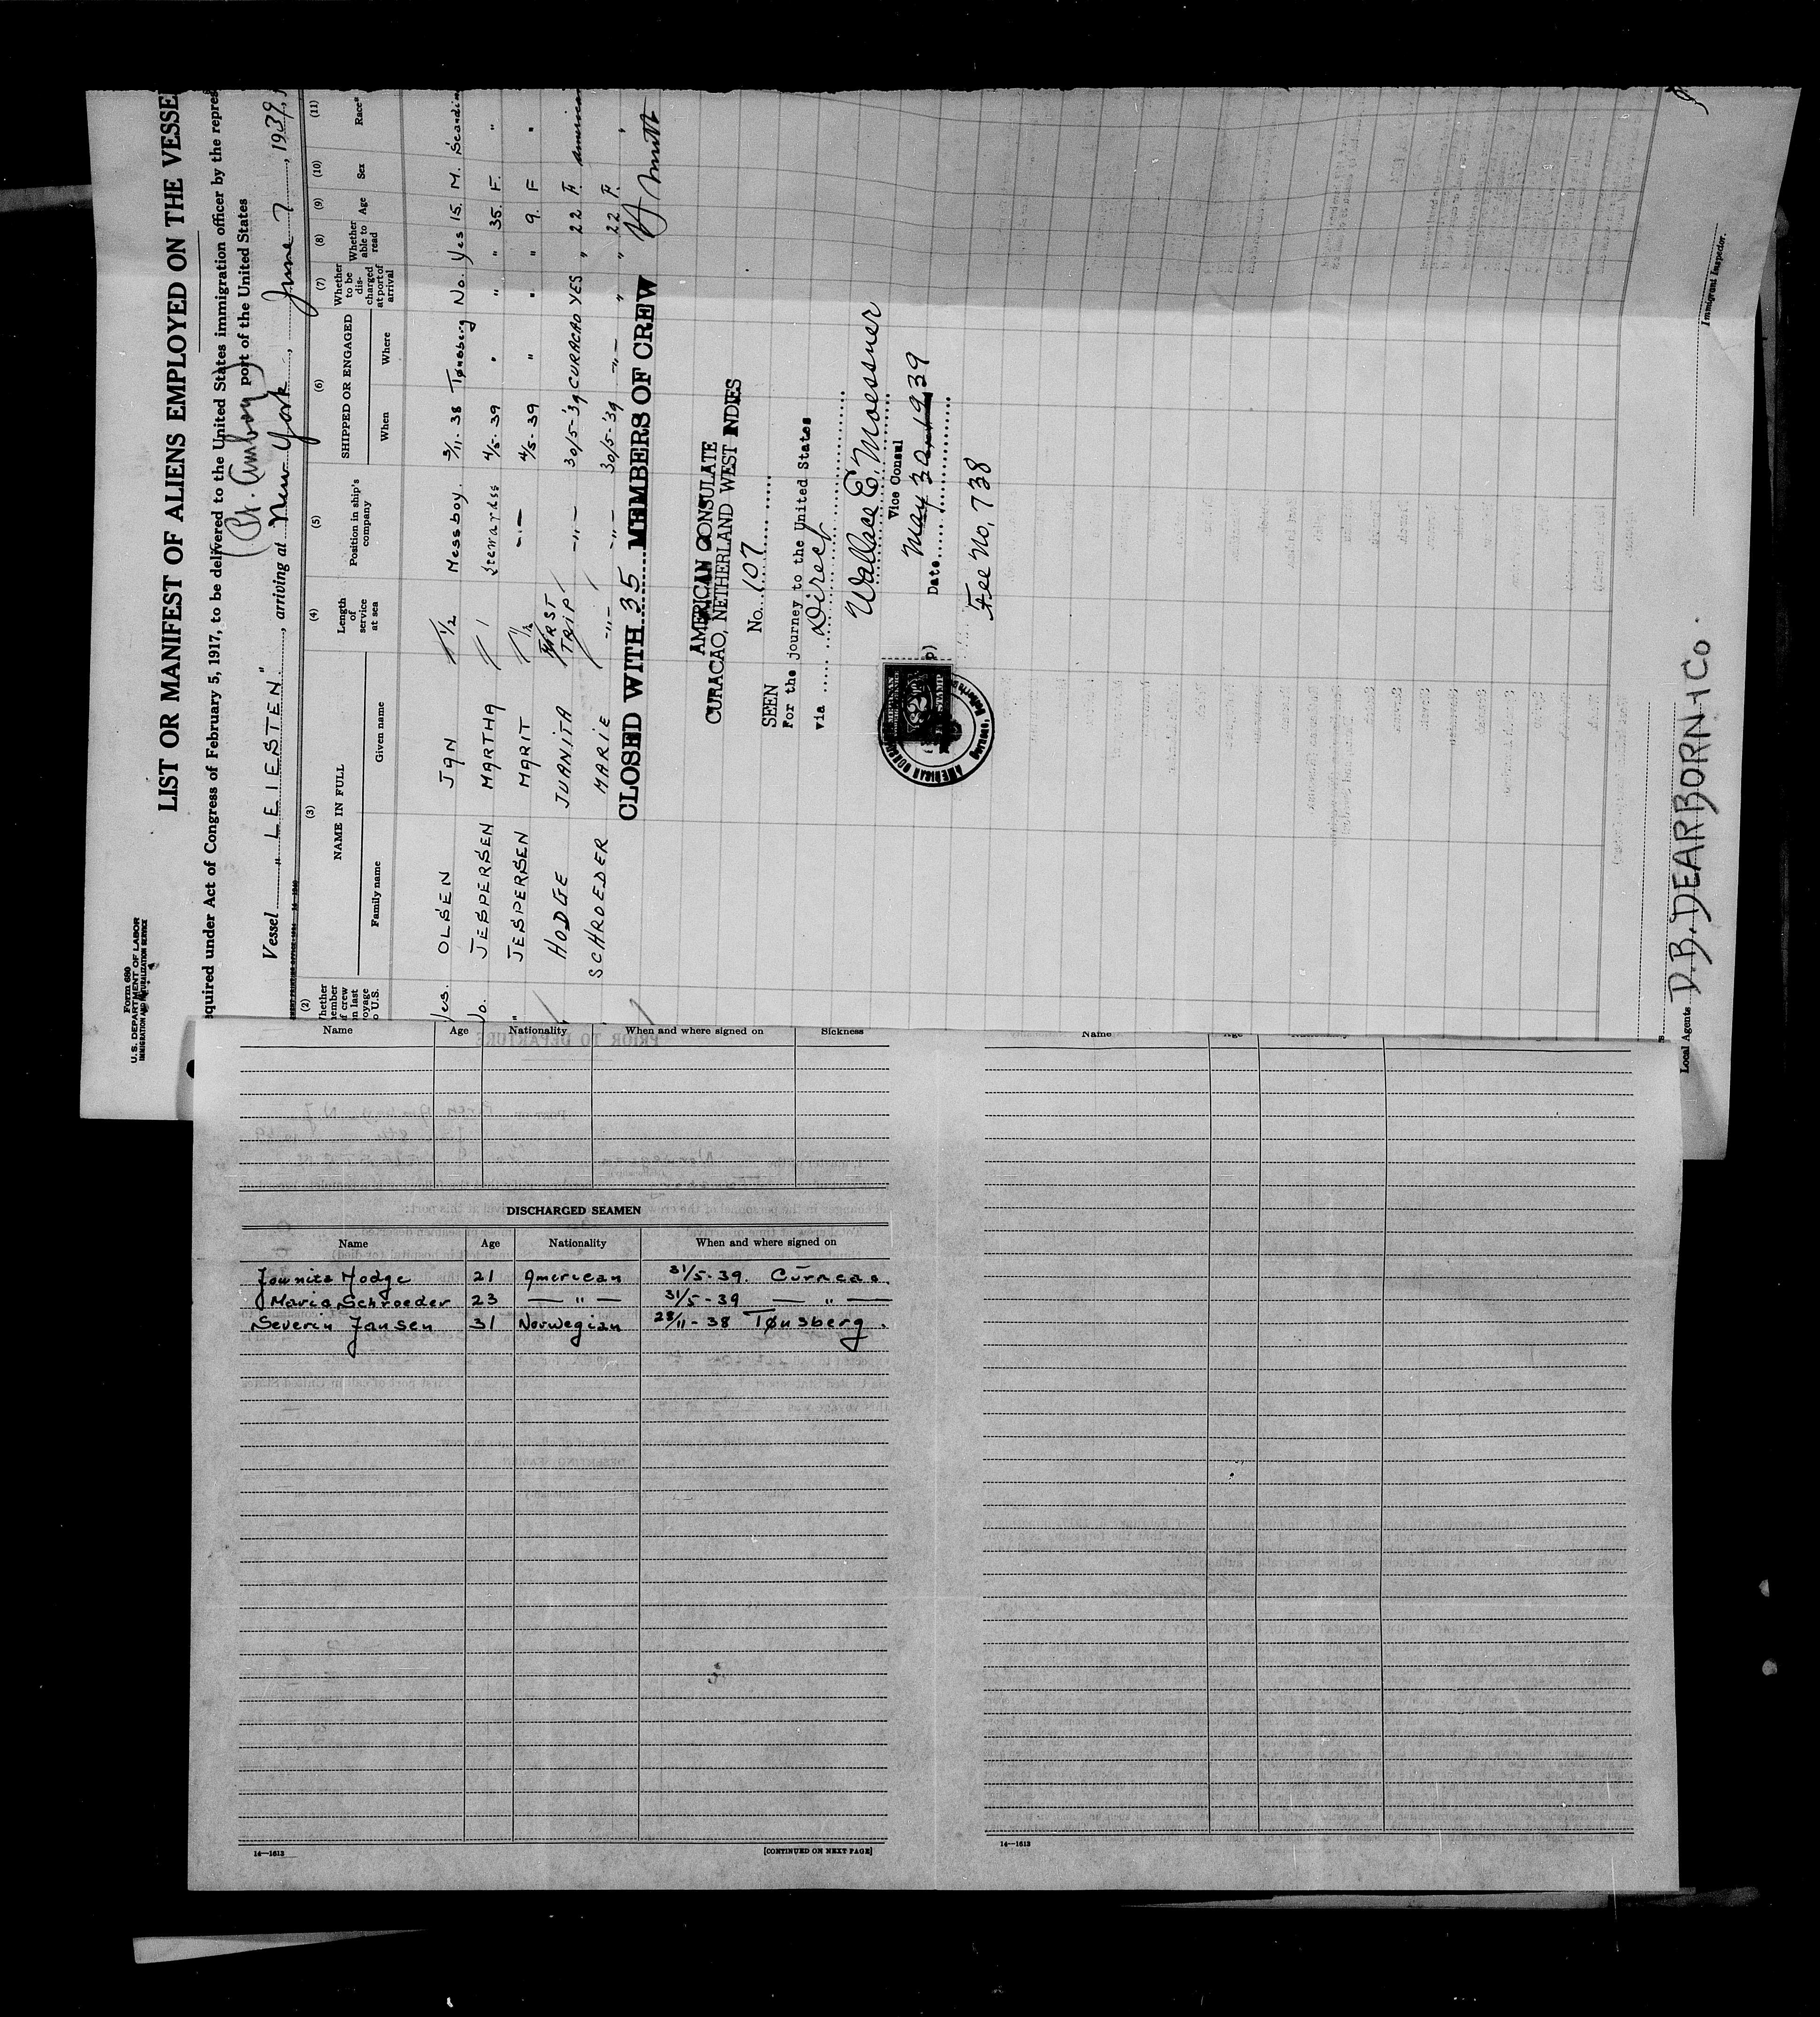 Form 680
U.S. DEPARTMENT OF LABOR
IMMIGRATION AND NATURALIZATION SERVICE
LIST OR MANIFEST OF ALIENS EMPLOYED ON THE VESSE
equired under Act of Congress of February 5, 1917, to be delivered to the United States immigration officer by the repres
port of the United States
(Pt. Amboy)
Vessel "LEIESTEN", arriving at New York, June 7, 1939,
(2) (3) (4) (5) (6) (7) (8) (9) (10) (11)
NAME IN FULL
Family name Given name
Length of service at sea
Position in ship's company
SHIPPED OR ENGAGED
When Where
Whether to be discharged at port of arrival
Whether able to read
Age Sex Race*
Yes. OLSEN JAN 1/2 Messboy. 3/11-38 Tønsberg No. Yes 15. M. Scandin
No. JESPERSEN MARTHA 1 Stewardss 4/5-39 " " " 35. F. "
" JESPERSEN MARIT 1/2 -"- 4/5-39 " " " 9. F "
HODGE JUANITA FIRST TRIP -"- 30/5-'39 CURACAO YES " 22 F. American
SCHROEDER MARIE -"- -"- 30/5-'39 -"- " " 22 F. "
CLOSED WITH 35 MEMBERS OF CREW
AMERICAN CONSULATE
CURACAO, NETHERLAND WEST INDIES
No. 107
SEEN
For the journey to the United States
via Direct
Wallace E. Moessner
Vice Consul
Date May 30 1939
Fee No. 738
Immigrant Inspector.
Local Agents D.B. DEARBORN & Co.
Name Age Nationality When and where signed on Sickness
Name Age Nationality
DISCHARGED SEAMEN
Name Age Nationality When and where signed on
Jounita Hodge 21 American 31/5-39. Curacao.
Maria Schroeder 23 — " — 31/5-39 — " —
Severin Jansen 31 Norwegian 28/11-38 Tønsberg.
14—1613 [CONTINUED ON NEXT PAGE]
14—1613